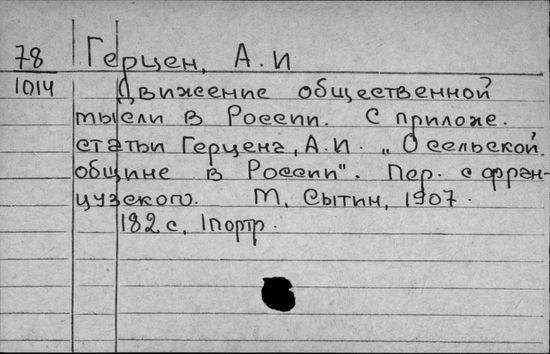 78 Герцен, А.И
1014 Движение общественной
мысли в России. С приложе.
статьи Герцена, А.И. „О сельской
общине в России". Пер. с фран-
цузского. М, Сытин, 1907.
182 с, 1портр.